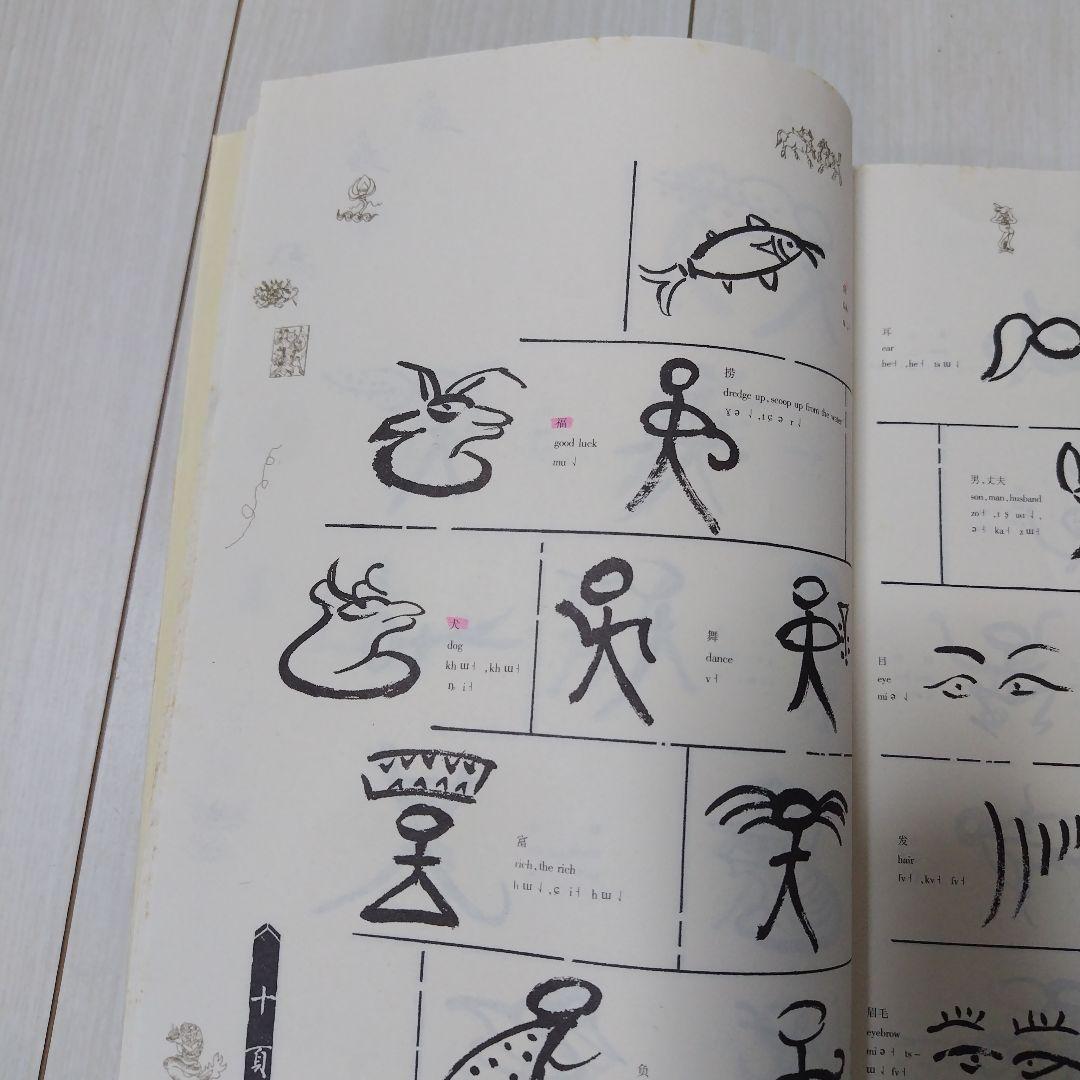 福
good luck
mu ˩
捞
dredge up, scoop up from the water
犬
dog
khɯ˧ ,khɯ˧
ȵi˧
舞
dance
v˧
富
rich, the rich
hɯ˩ ,ɕi˧ hɯ˩
负
十
頁
耳
ear
he˧ ,he˧ tsɯ˩
男、丈夫
son, man, husband
目
eye
miə˩
发
hair
fv˧ ,kv˧ fv˧
眉毛
eyebrow
miə˧ ts–
ɯ˩ fv˧